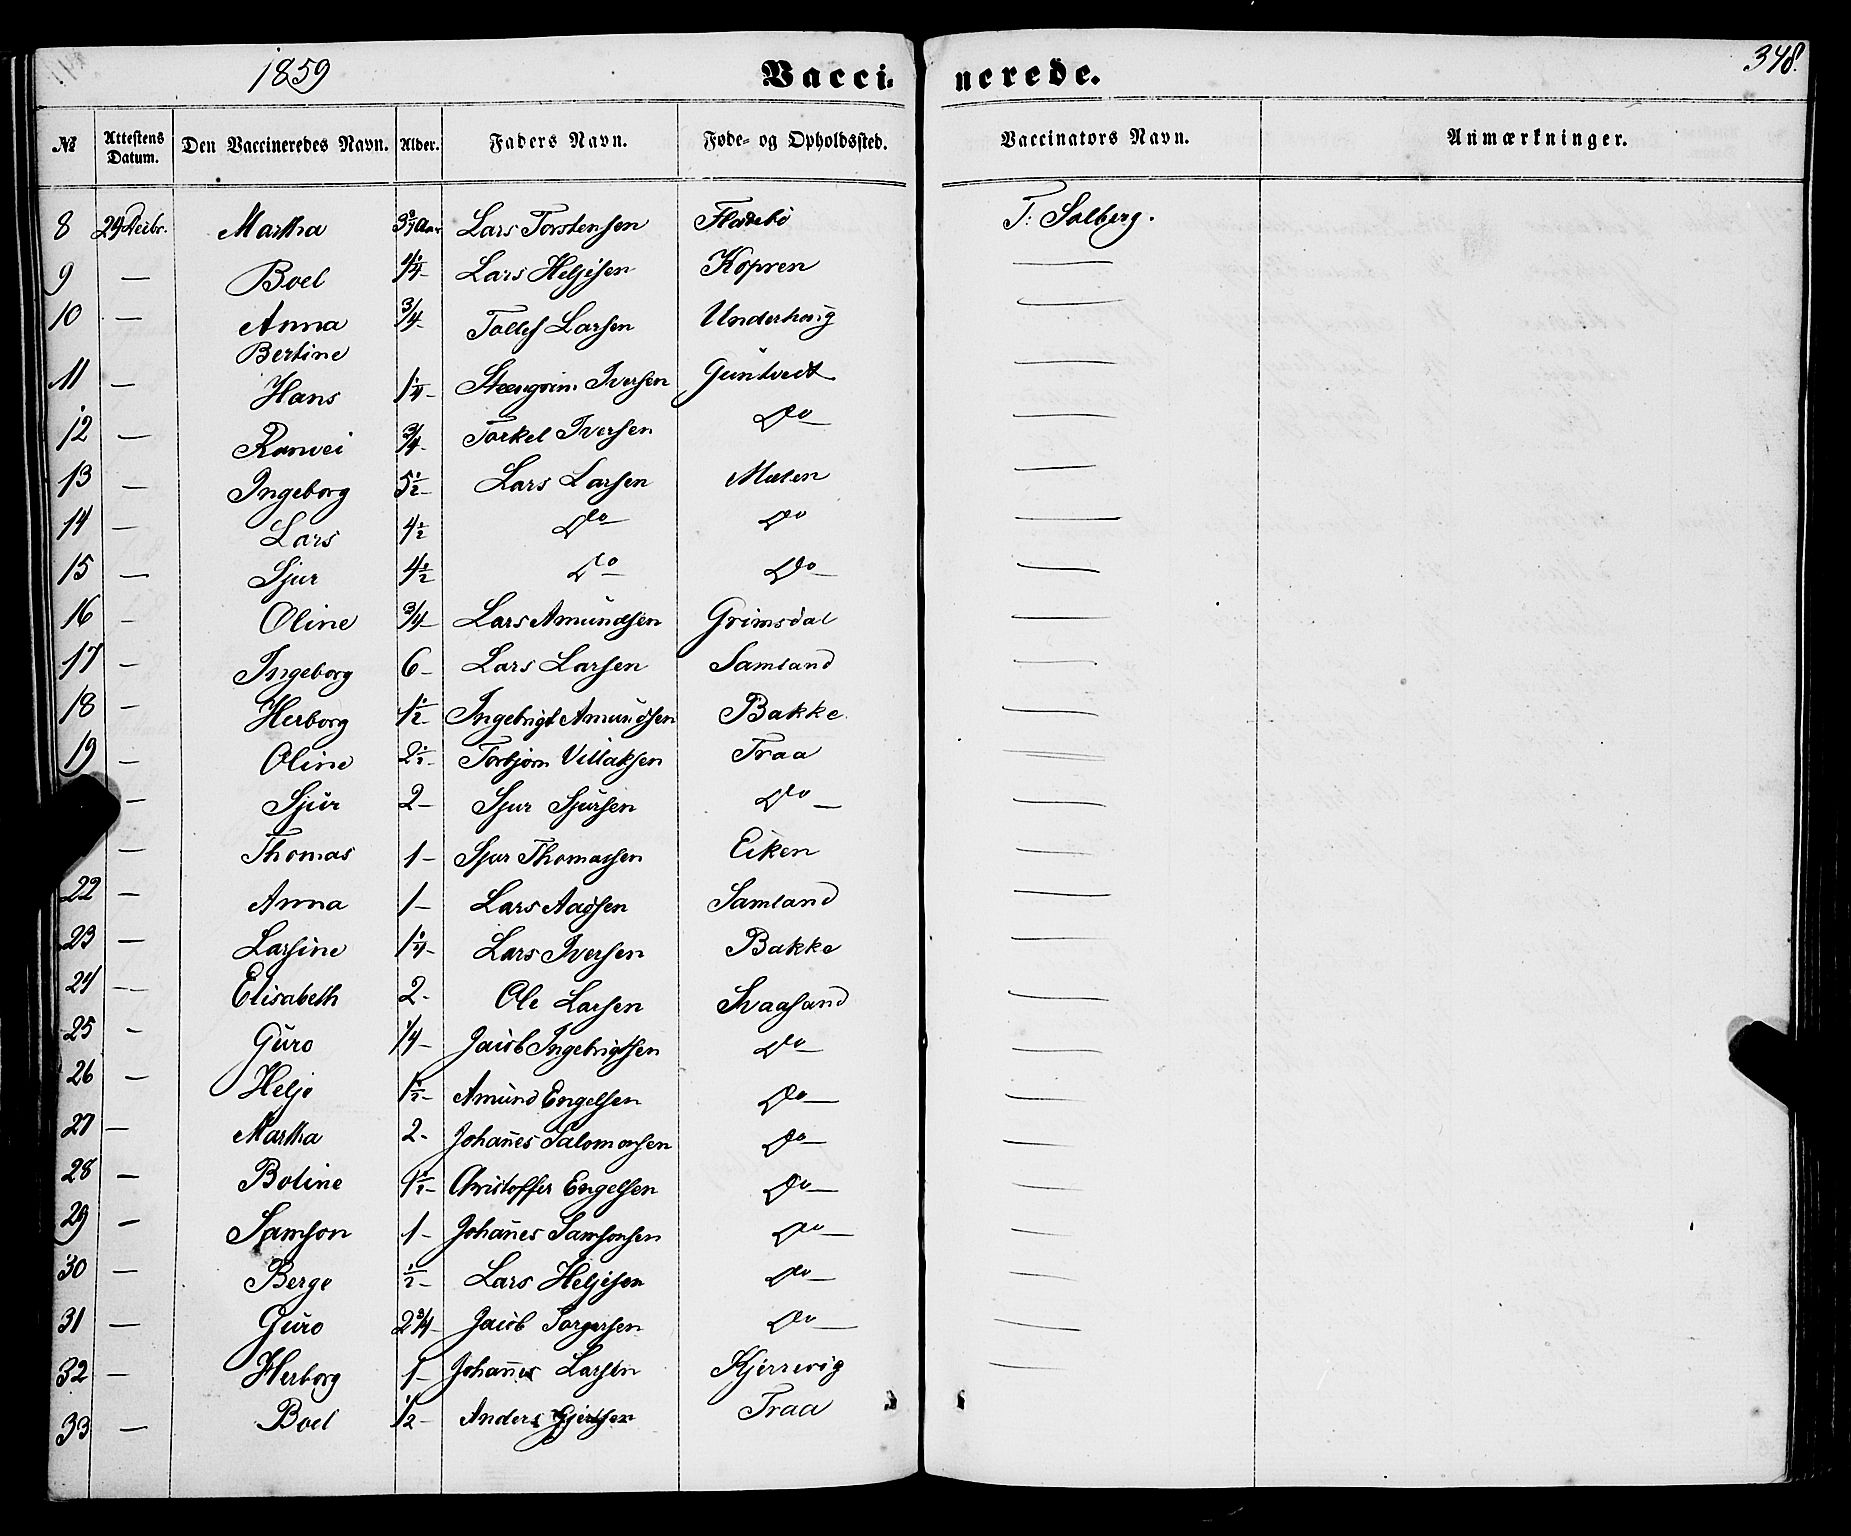 1859 Vaccinerede. 348.
№ Attestens Datum. Den Vaccineredes Navn. Alder. Faders Navn. Føde- og Opholdssted. Vaccinators Navn. Anmærkninger.
8 29 Decbr. Martha Aar Lars Torstensen Fladebö T: Solberg.
9 — Boel 1¼ - Lars Heljesen Kopren —
10 — Anna Bertine ¾ - Tollef Larsen Underhaug —
11 — Hans 1¼ - Steengrim Iversen Guntvedt —
12 — Ranvei ¾ - Torkel Iversen Do — —
13 — Ingeborg 5½ - Lars Larsen Mælen —
14 — Lars 4½ Do — Do —
15 — Sjur 4½ Do — Do — —
16 - Oline ¾ - Lars Amundsen Grimsdal —
17 - Ingeborg 6 - Lars Larsen Samland —
18 — Herborg 1½ - Ingebrigt Amundsen Bakke —
19 — Oline 2½ - Torbjörn Villaksen Traa —
— Sjur 2 - Sjur Sjursen Do — —
— Thomas 1 - Sjur Thomassen Eiken —
22 — Anna 1 - Lars Aadsen Samland —
23 — Larsine 1¼ - Lars Iversen Bakke —
24 — Elisabeth 2 - Ole Larsen Svaasand —
25 - Guro ¼ - Jacob Ingebrigtsen Do — —
26 — Helje 1½ - Amund Engelsen Do — —
27 — Martha 2 - Johan̄es Salomonsen Do — —
28 — Boline Christoffer Engelsen Do — —
29 — Samson 1 - Johan̄es Samsonsen Do — —
30 — Berge ½ - Lars Heljesen Do — —
31 — Guro 2¾ - Jacob Torgersen Do — —
32 — Herborg 1 - Johan̄es Larsen Kjerrevig —
33 — Boel ½ - Anders Gjertsen Traa